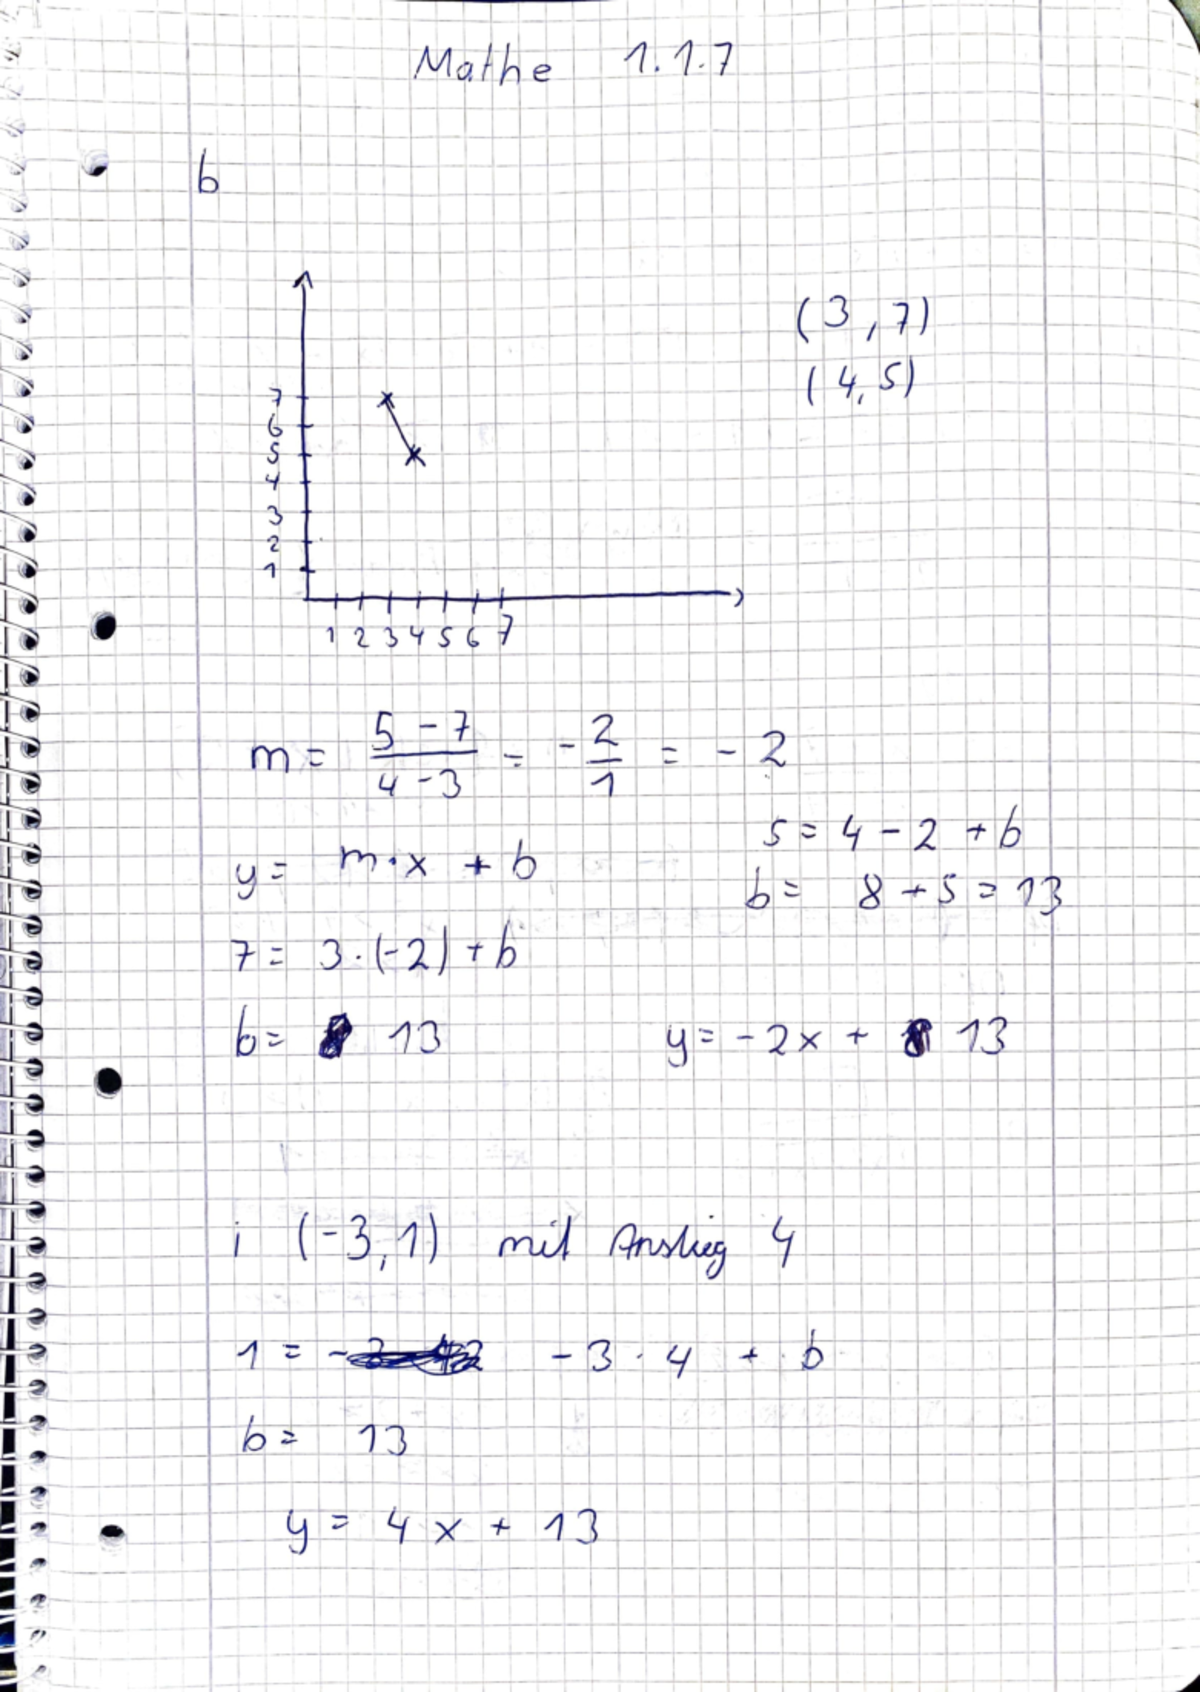 Mathe 1.1.7
b
(3,7)
(4,5)
7
6
5
4
3
2
1
1 2 3 4 5 6 7
m = (5 - 7)/(4 - 3) = - 2/1 = - 2
5 = 4 - 2 + b
y = m·x + b
b = 8 + 5 = 13
7 = 3·(-2) + b
b = 13 y = -2x + 13
i (-3,1) mit Anstieg 4
1 = -3·4 + b
b = 13
y = 4x + 13